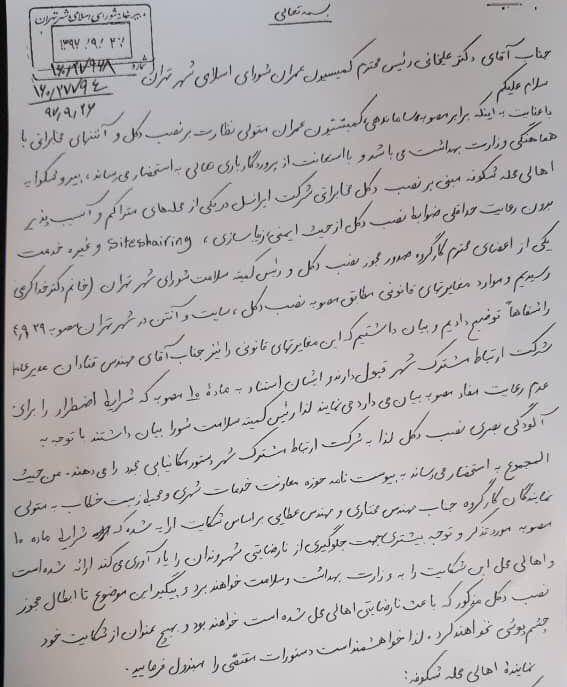 بسمه تعالی
دبیرخانه شورای اسلامی شهر تهران
۱۳۹۷/۹/۲۶
شماره ۱۶۰/۲۷۷۹۴
۹۷,۹,۲۶
جناب آقای دکتر علیخانی رئیس محترم کمیسیون عمران شورای اسلامی شهر تهران
سلام علیکم
باعنایت به اینکه برابر مصوبه ساماندهی، کمیسیون عمران متولی نظارت بر نصب دکل و آنتنهای مخابراتی با
هماهنگی وزارت بهداشت می باشد و با استعانت از پروردگار باری تعالی به استحضار می رساند، پیرو شکوائیه
اهالی محله شکوفه مبنی بر نصب دکل مخابراتی شرکت ایرانسل در یکی از محله‌های متراکم و آسیب پذیر
بدون رعایت حداقلی ضوابط نصب دکل از حیث ایمنی، زیباسازی، Siteshairing و غیره خدمت
یکی از اعضای محترم کارگروه صدور مجوز نصب دکل و رئیس کمیته سلامت شورای شهر تهران (خانم دکتر خداکرمی)
رسیدیم و موارد مغایرتهای قانونی مطابق مصوبه نصب دکل، سایت و آنتن در شهر تهران مصوبه
را شفاهاً توضیح دادیم و بیان داشتیم که این مغایرتهای قانونی را نیز جناب آقای مهندس قنادان مدیرعامل
شرکت ارتباط مشترک شهر قبول دارند و ایشان استناد به ماده ۱۰ مصوبه که شرایط اضطرار را برای
عدم رعایت مفاد مصوبه بیان می دارد می نمایند لذا رئیس کمیته سلامت شورا بیان داشتند با توجه به
آلودگی بصری نصب دکل لذا به شرکت ارتباط مشترک شهر دستور مکانیابی مجدد را می دهند. من حیث
المجموع به استحضار می رساند به پیوست نامه حوزه معاونت خدمات شهری و محیط زیست خطاب به متولی
نمایندگان کارگروه جناب مهندس مختاری و مهندس عطایی بر اساس شکایت ارایه شده که شرایط ماده ۱۰
مصوبه مورد تذکر و توجه بیشتری جهت جلوگیری از نارضایتی شهروندان را یادآوری می کند ارائه شده است
و اهالی محل این شکایت را به وزارت بهداشت و سلامت خواهند برد و پیگیر این موضوع تا ابطال مجوز
نصب دکل مذکور که باعث نارضایتی اهالی محل شده است خواهند بود و بهیچ عنوان از شکایت خود
چشم پوشی نخواهند کرد. لذا خواهشمند است دستورات مقتضی را مبذول فرمایید.
نماینده اهالی محله شکوفه: